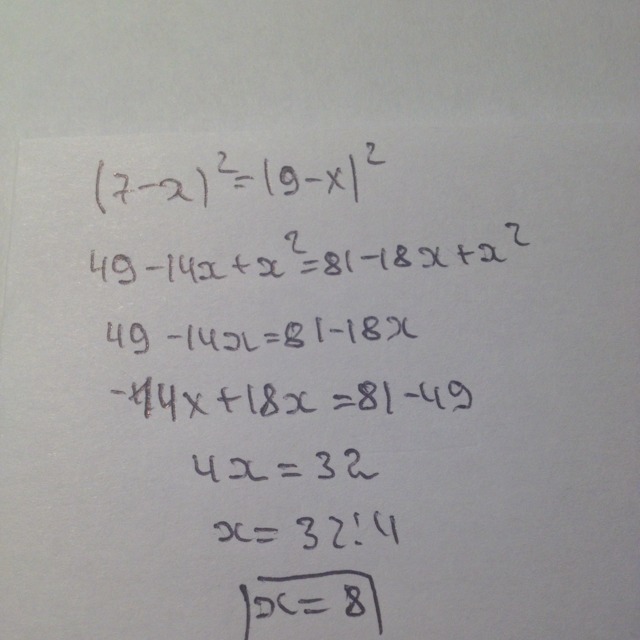 (7-x)²=(9-x)²
49-14x+x²=81-18x+x²
49-14x=81-18x
-14x+18x=81-49
4x=32
x=32:4
x=8